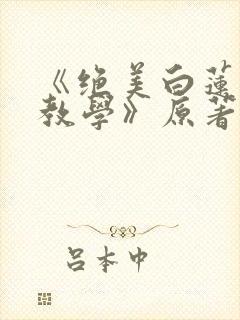 《绝美白蓮
教學》原著
呂本中